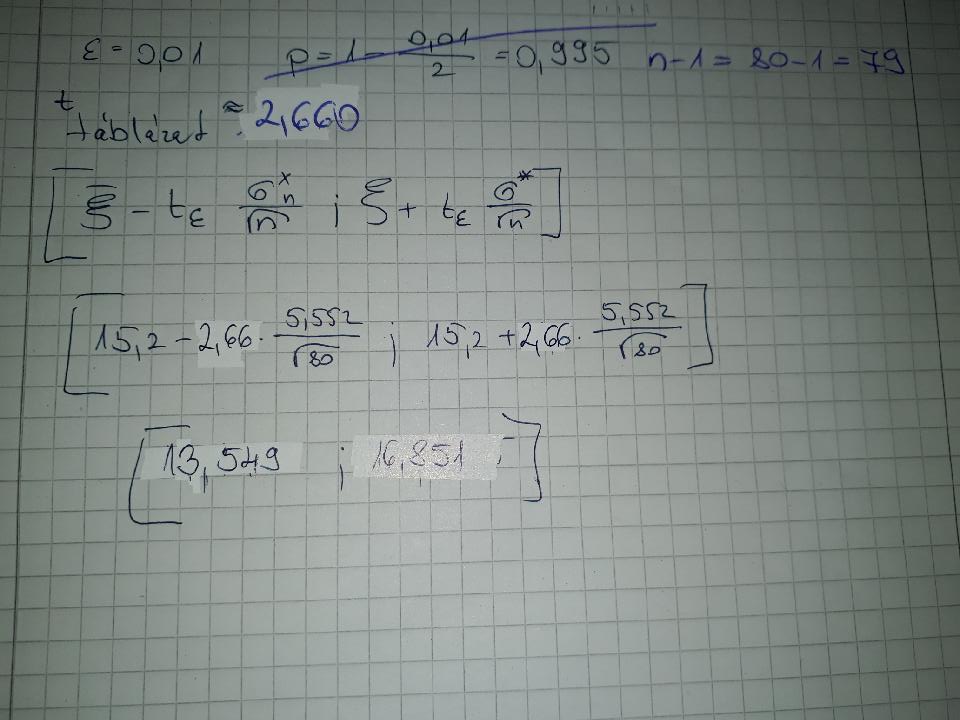 ε = 0,01 p = 1 - 0,01/2 = 0,995 n-1 = 80-1 = 79
t táblázat ≈ 2,660
[ ξ̄ - tε σ*n/√n ; ξ + tε σ*/√n ]
[ 15,2 - 2,66 · 5,552/√80 ; 15,2 + 2,66 · 5,552/√80 ]
[ 13,549 ; 16,851 ]